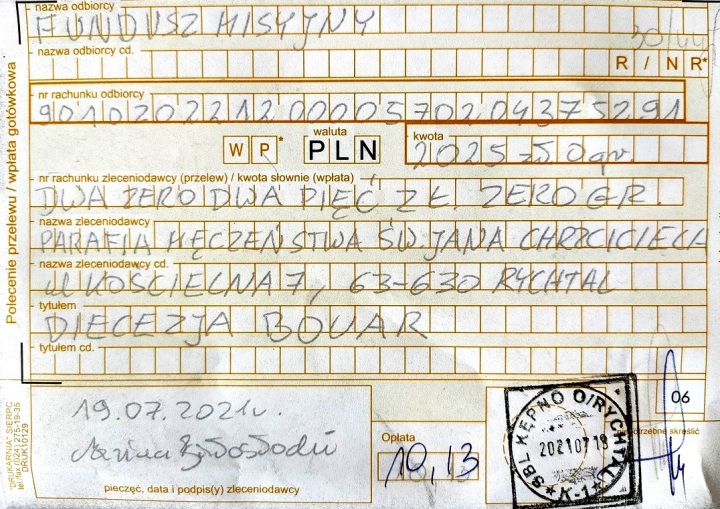 nazwa odbiorcy
FUNDUSZ MISYJNY
nazwa odbiorcy cd.
R / N R*
nr rachunku odbiorcy
90102022120000570204375291
W P *
waluta
PLN
kwota
2025 zł 0 gr.
nr rachunku zleceniodawcy (przelew) / kwota słownie (wpłata)
DWA ZERO DWA PIĘĆ ZŁ. ZERO GR.
nazwa zleceniodawcy
PARAFIA MĘCZEŃSTWA ŚW. JANA CHRZCICIELA
nazwa zleceniodawcy cd.
ul KOŚCIELNA 7, 63-630 RYCHTAL
tytułem
DIECEZJA BOUAR
tytułem cd.
Polecenie przelewu / wpłata gotówkowa
19.07.2021r.
pieczęć, data i podpis(y) zleceniodawcy
Opłata
10,13
SBL KĘPNO O/RYCHTAL
2021 07 19
K-1
06
skreślić
"DRUKARNIA" SIERPC
tel./fax (024) 275-19-35
DRUK10129